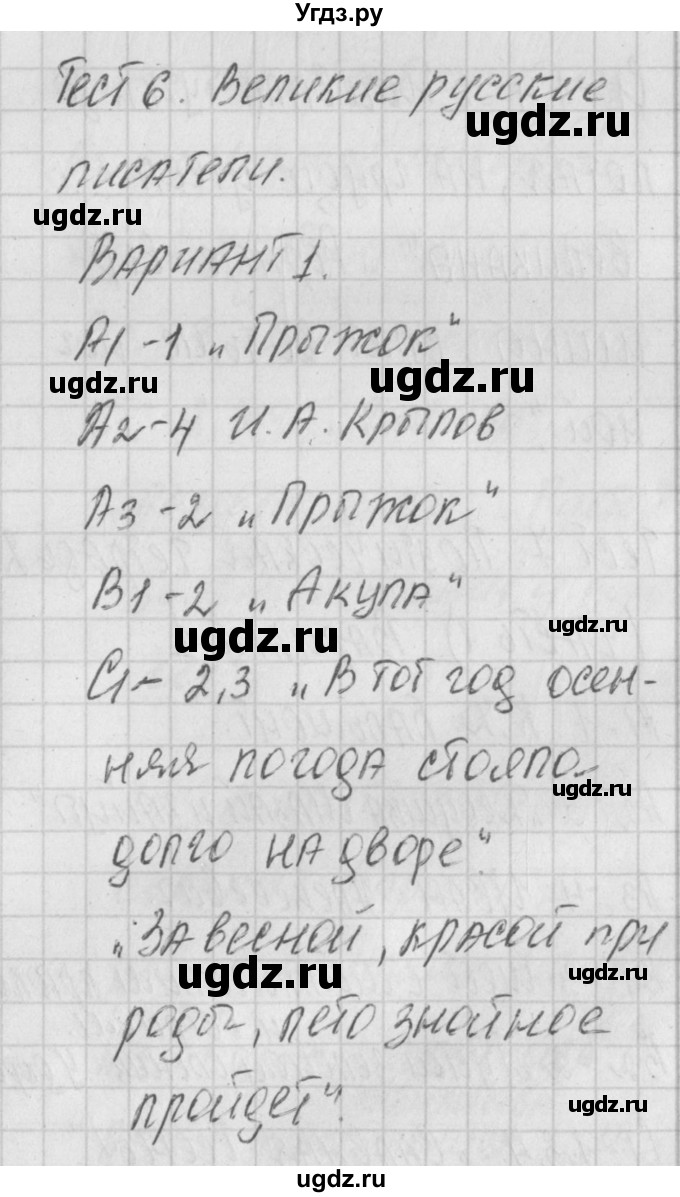 Угдз.ру
Тест 6. Великие русские
ugdz.ru
писатели.
ugdz.ru
Вариант 1.
А1-1 „Прыжок"
ugdz.ru
ugdz.ru
А2-4 И.А. Крылов
А3-2 „Прыжок"
В1-2 „Акула"
ugdz.ru
ugdz.ru
С1- 2,3 „В тот год осен-
няя погода стояло
ugdz.ru
долго на дворе".
„За весной, красой при
ugdz.ru
ugdz.ru
роды, лето знойное
пройдет".
ugdz.ru
ugdz.ru